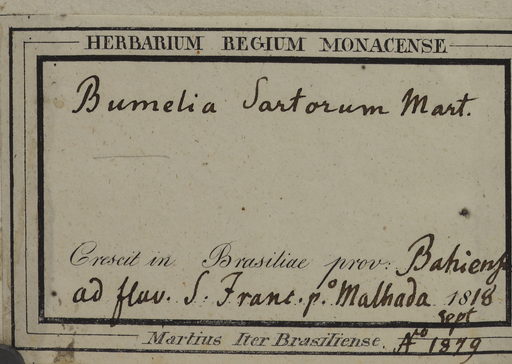 HERBARIUM REGIUM MONACENSE
Bumelia Sartorum Mart.
Crescit in Brasiliae prov: Bahiens
ad fluv. S. Franc. p.º Malhada 1818
sept
Martius Iter Brasiliense. Aº 1879